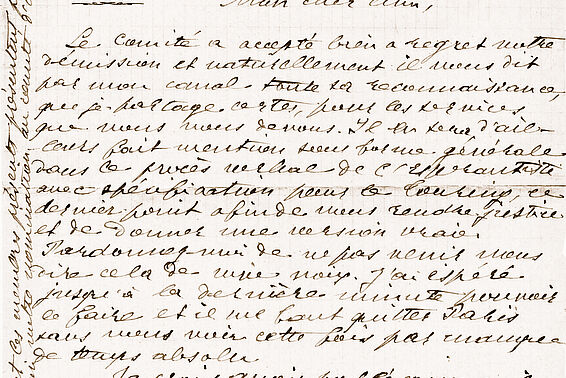 Mon cher ami,
Le Comité a accepté bien a regret votre
démission et naturellement il vous dit
par mon canal toute sa reconnaissance,
que je partage certes, pour les services
que nous vous devons. Il en sera d'ail-
leurs fait mention sous forme générale
dans le procès verbal de l'Esperantiste
avec spécification pour le Touring, ce
dernier point afin de vous rendre justice
et de donner une version vraie.
Pardonnez-moi de ne pas venir vous
dire cela de vive voix. J'ai espéré
jusqu'à la dernière minute pouvoir
le faire et il me faut quitter Paris
sans vous voir cette fois par manque
de temps absolu.
et ces membres présents présentant
au comité